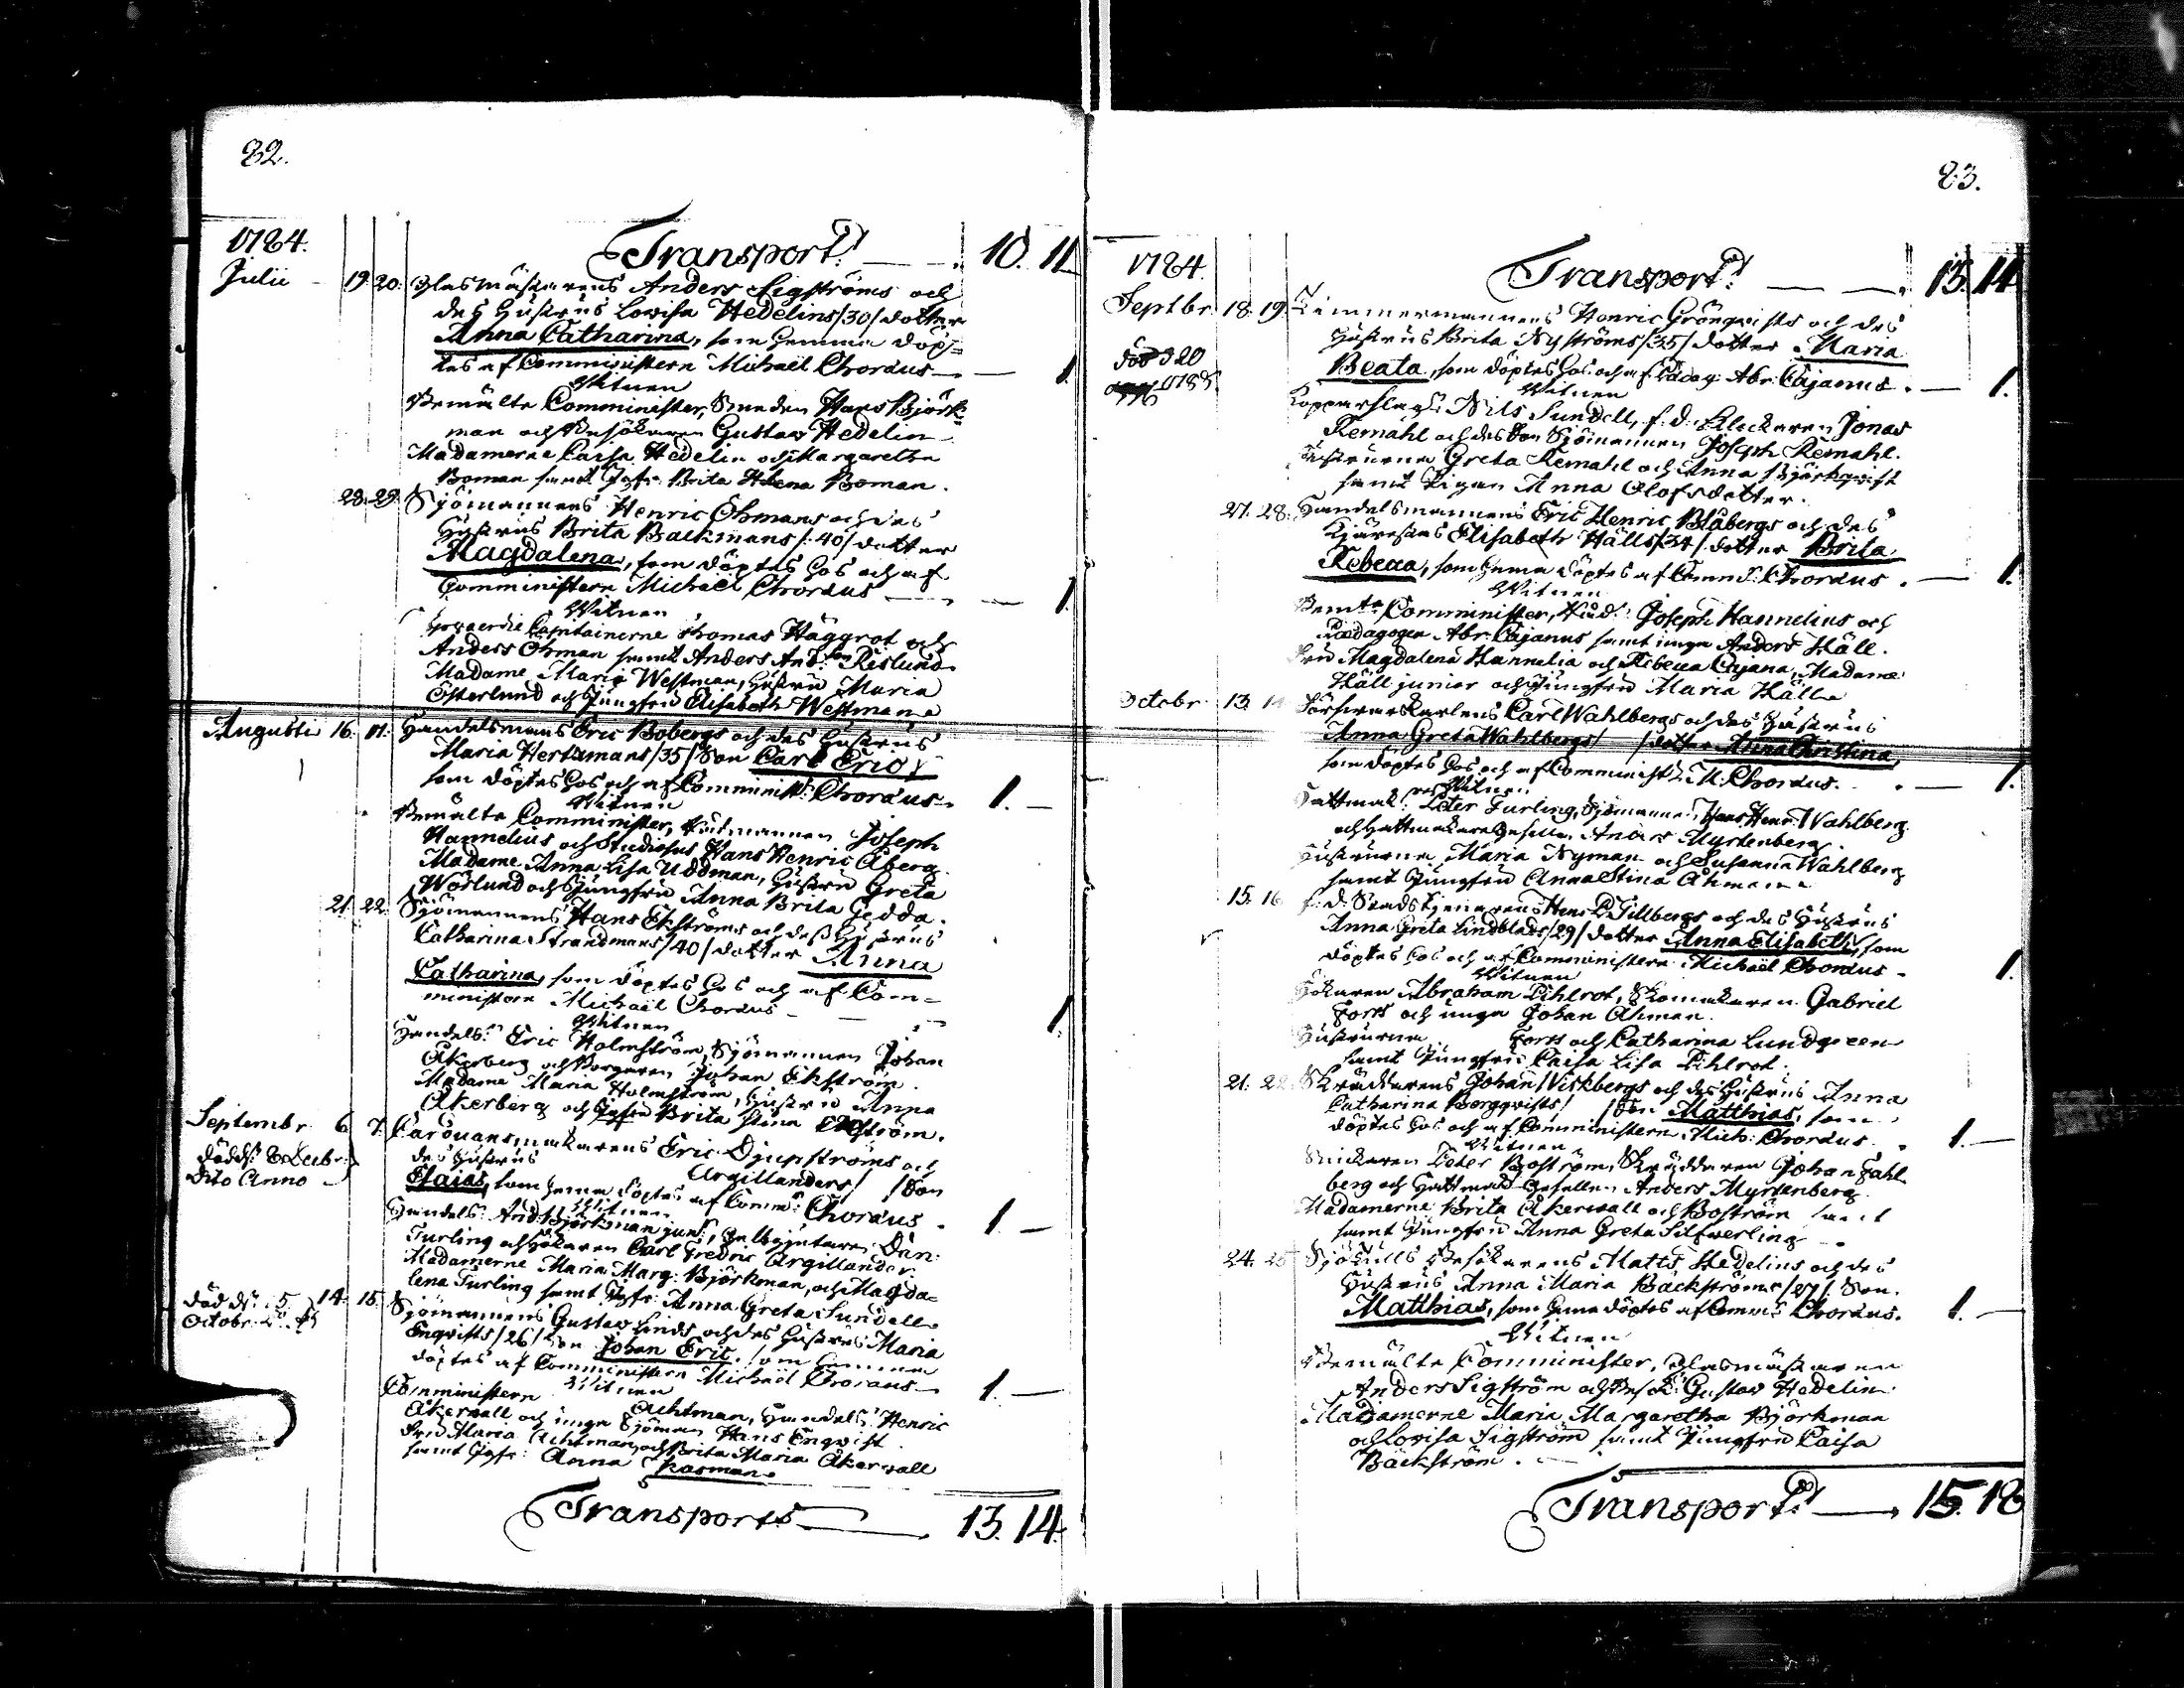 82.
1784. Transport 10. 11
Julii 19. 20. Glasmästarens Anders Sigströms och
des Hustrus Lovisa Hedelins /30/ dotter
Anna Catharina, som hemma döp=
tes af Comministern Michaël Choræus 1.
Witnen
Bemälte Comminister, Hans Björk=
man och Besökaren Gustav Hedelin
Madamerne Caisa Hedelin och Margaretha
Boman samt Jgfr: Brita Helena Boman.
28. 29. Sjömannens Henric Öhmans och des
Hustrus Brita Backmans /:40/ dotter
Magdalena, som döptes hos och af
Comministern Michaël Choræus 1
Witnen
Captainerne Thomas Häggrot och
Anders Öhman samt Anders And:son Rislund
Madame Maria Westman, Hustru Maria
Österlund och Jungfru Elisabeth Westman
Augusti 16. 17. Handelsmans Eric Bobergs och des Hustrus
Maria Hertzmans /35/ Son Carl Eric
som döptes hos och af Comminist: Choræus 1. —
Witnen
Bemälte Comminister, Rådmannen Joseph
Hannelius och Studiosus Hans Henric Åberg
Madame Anna Lisa Uddman, Hustru Greta
Wörlund och Jungfru Anna Brita Gedda.
21. 22. Sjömannens Hans Ekströms och dess Hustrus
Catharina Strandmans /40/ dotter Anna
Catharina, som döptes hos och af Com=
ministern Michaël Choræus 1.
Witnen
Handels: Eric Holmström, Sjömannen Johan
Åkerberg och Borgaren Johan Ekström.
Madame Maria Holmström, Hustru Anna
Åkerberg och Jgfr Brita Stina Ekström.
Septembr 6 7. Carduansmakarens Eric Djupströms och
död d: 8 Decbr: des Hustrus Argillanders / / Son
dito Anno Esaias, som hema döptes af Comm: Choræus. 1 —
Witnen
Handels: And: Björkman jun:, Gelbgjutaren Dan:
Turling och Hökaren Carl Fredric Argillander
Madamerne Maria Marg: Björkman, och Magda=
lena Turling samt Jgfr: Anna Greta Sundell
död d: 5. 14. 15. Sjömannens Gustav Linds och des Hustrus Maria
Octobr. Enqvists /26/ Son Johan Eric, som hemma
döptes af Comministern Michaël Choræus 1. —
Witnen
Comministern Achtman, Handels: Henric
Åkervall och unge Sjöman Hans Enqvist
Fru Maria Achtman, och Brita Maria Åkervall
samt Jgfr: Anna Kasman
Transport 13. 14.
83.
1784. Transport 13. 14
Septbr. 18. 19. Timmermannens Henric Grönqvists och des
Hustrus Brita Nyströms /35/ dotter Maria
Beata, som döptes hos och af Pædag: Abr: Cajanus. 1.
Witnen
Kopparslag: Nils Sundell, f. d. Klockaren Jonas
Remahl och des Son Sjömannen Joseph Remahl.
Hustrurna Greta Remahl och Anna Björkqvist
samt Pigan Anna Olofsdotter.
27. 28. Handelsmannens Eric Henric Blåbergs och des
Kjärestas Elisabeth Hälls /34/ dotter Brita
Rebecca, som hema döptes af Comm: Choræus. 1.
Witnen
Bemte Comminister, Råd: Joseph Hannelius och
Pædagogen Abr: Cajanus samt unge Anders Häll.
Fru Magdalena Hannelia och Rebecca Cajana, Madame
Häll junior och Jungfru Maria Häll
Octobr 13. 14. Försvarskarlens Carl Wahlbergs och des Hustrus
Anna Greta Wahlbergs / / dotter Anna Christina,
som döptes hos och af Comminist: M. Choræus. 1.
Witnen
Hattmak: Peter Turling, Sjömannen Hans Henr: Wahlberg
och Hattmakare Gesellen Anders Myrtenberg.
Hustrurna Maria Nyman och Susanna Wahlberg
samt Jungfru Anna Stina Åhman
15. 16. f: d: Stads Tjenarens Hans P. Tillbergs och des Hustrus
Anna Greta Lindblads /29/ dotter Anna Elisabeth, som
döptes hos och af Comministern Michaël Choræus 1.
Witnen
Hökaren Abraham Pihlrot, Skomakaren Gabriel
Forss och unge Johan Åhman.
Hustrurna Forss och Catharina Lundgreen
samt Jungfru Caisa Lisa Pihlrot.
21. 22. Skräddarens Johan Wickbergs och des Hustrus Anna
Catharina Bergqvists / / Son Matthias, som
döptes hos och af Comministern Mich: Choræus. 1. —
Witnen
Snickaren Peter Boström, Skräddaren Johan Fahl
berg och Hattmak: Gesellen Anders Myrtenberg.
Madamerne Brita Åkervall och Boström samt
samt Jungfru Anna Greta Silfverling
24. 25 Sjötulls Besökarens Matts Hedelins och des
Hustrus Anna Maria Bäckströms /27/ Son.
Matthias, som hema döptes af Comm: Choræus. 1. —
Witnen
Bemälte Comminister, Glasmästaren
Anders Sigström och Gustav Hedelin
Madamerne Maria Margaretha Björkman
och Lovisa Sigström samt Jungfru Caisa
Bäckström.
Transport 15. 18